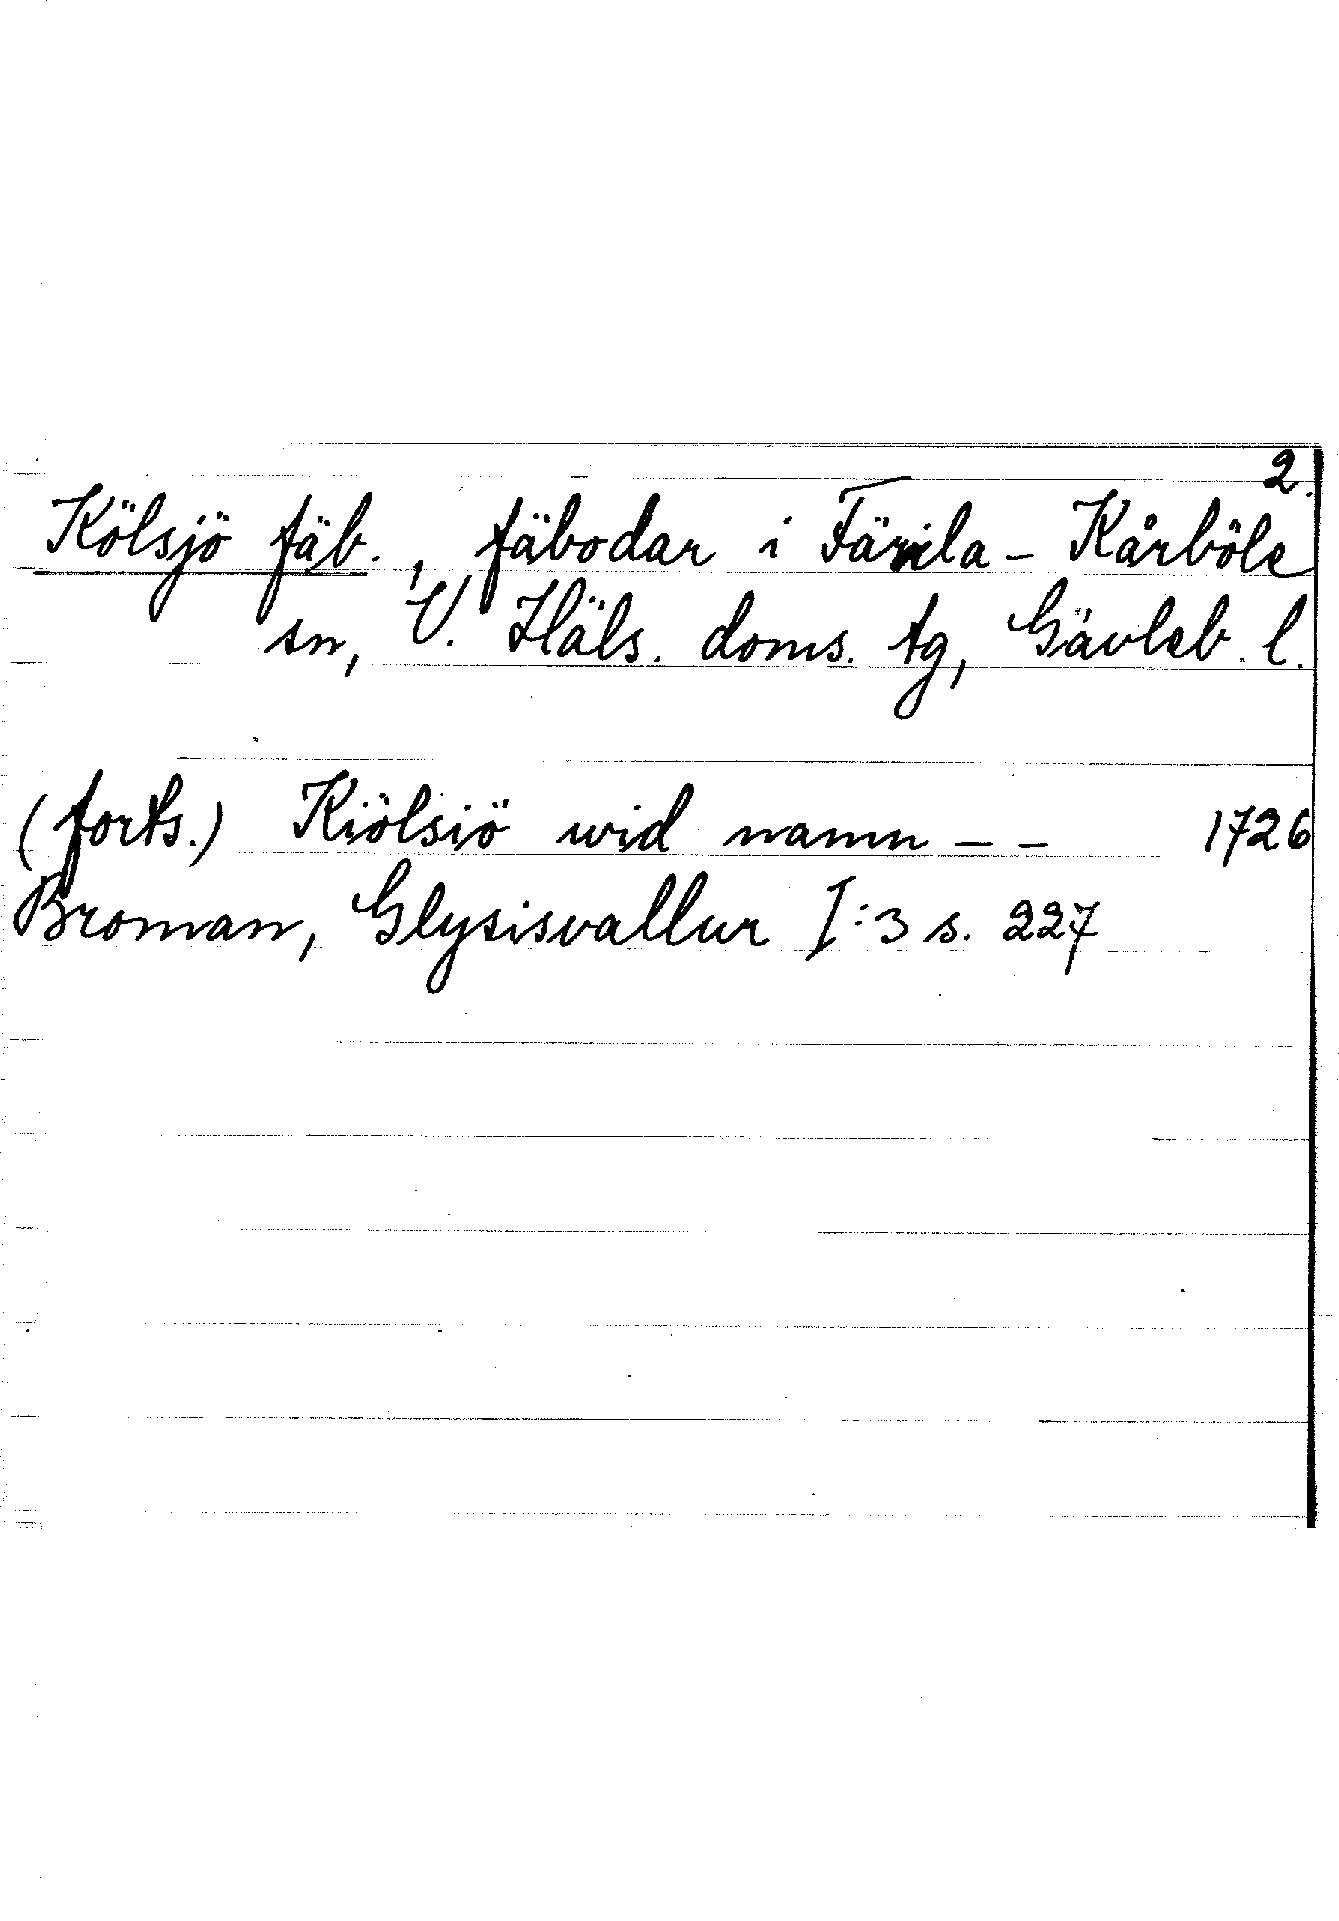 2.
Kölsjö fäb., fäbodar i Färila - Kårböle
sn, V. Häls. doms. tg, Gävleb. l.
(forts.) Kiölsiö wid namn - - 1726
Broman, Glysisvallur I:3 s. 227